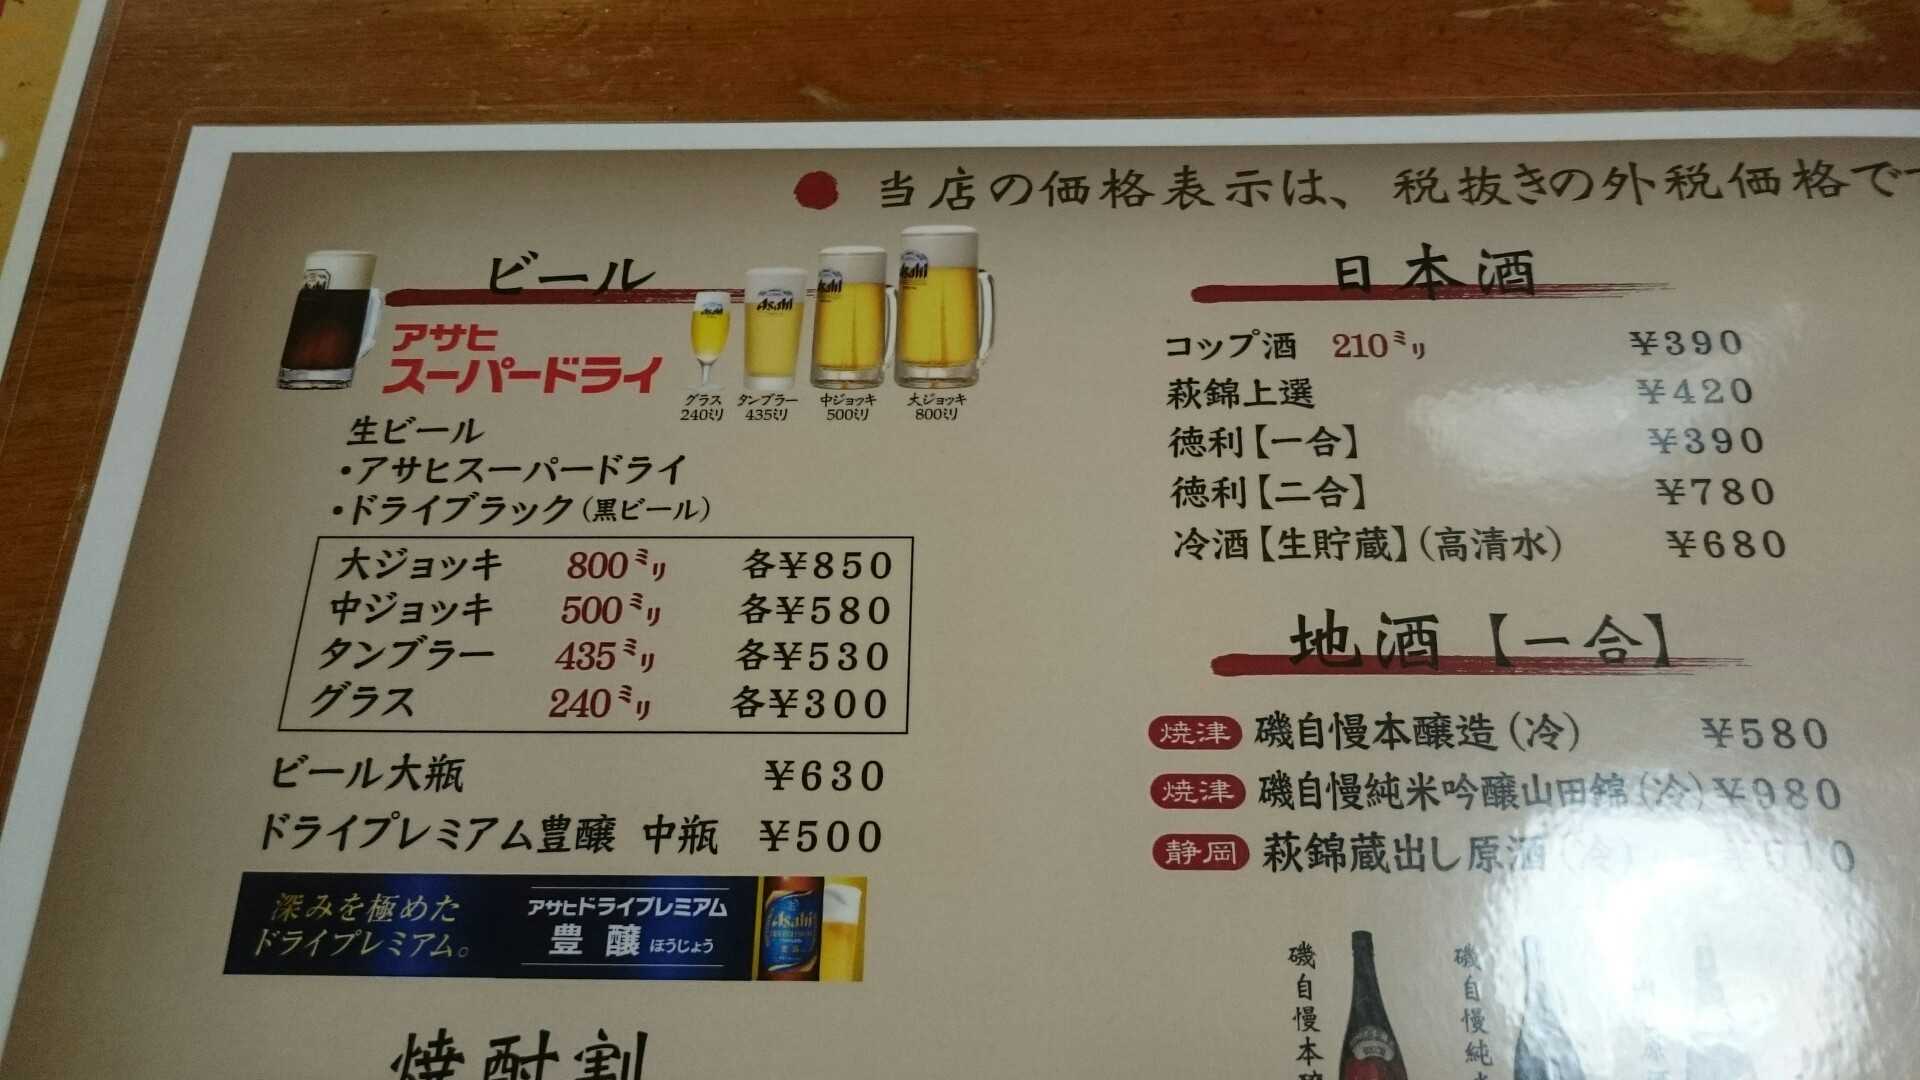 ● 当店の価格表示は、税抜きの外税価格で
ビール
アサヒ
スーパードライ
Asahi
Asahi
Asahi
グラス
240ミリ
タンブラー
435ミリ
中ジョッキ
500ミリ
大ジョッキ
800ミリ
生ビール
・アサヒスーパードライ
・ドライブラック(黒ビール)
大ジョッキ 800ミリ 各¥850
中ジョッキ 500ミリ 各¥580
タンブラー 435ミリ 各¥530
グラス 240ミリ 各¥300
ビール大瓶 ¥630
ドライプレミアム豊醸 中瓶 ¥500
深みを極めた
ドライプレミアム。
アサヒドライプレミアム
豊醸 ほうじょう
Asahi
焼酎割
日本酒
コップ酒 210ミリ ¥390
萩錦上選 ¥420
徳利【一合】 ¥390
徳利【二合】 ¥780
冷酒【生貯蔵】(高清水) ¥680
地酒【一合】
焼津 磯自慢本醸造(冷) ¥580
焼津 磯自慢純米吟醸山田錦(冷) ¥980
静岡 萩錦蔵出し原酒(冷)
磯自慢本醸
磯自慢純米